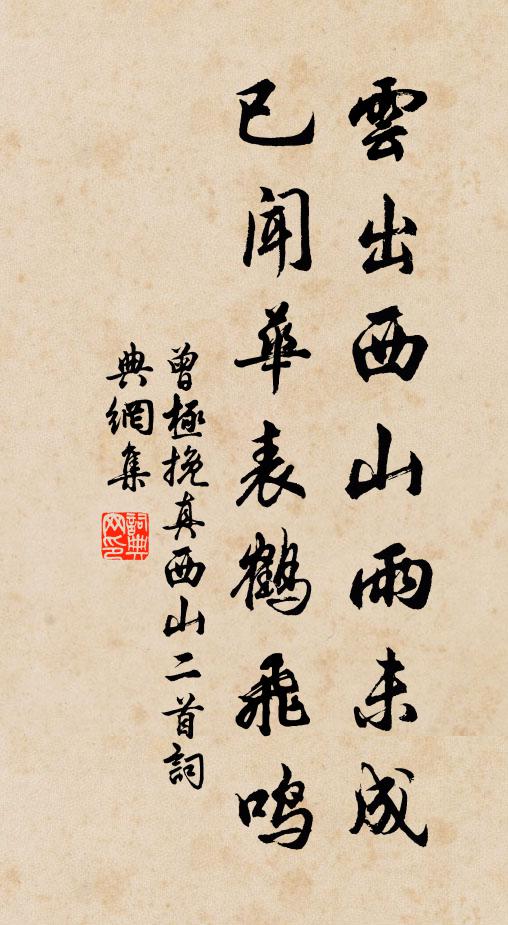 雲出西山雨未成
已闻華表鶴飛鸣
曾極挽真西山二首詞
典網集
詞典
网印